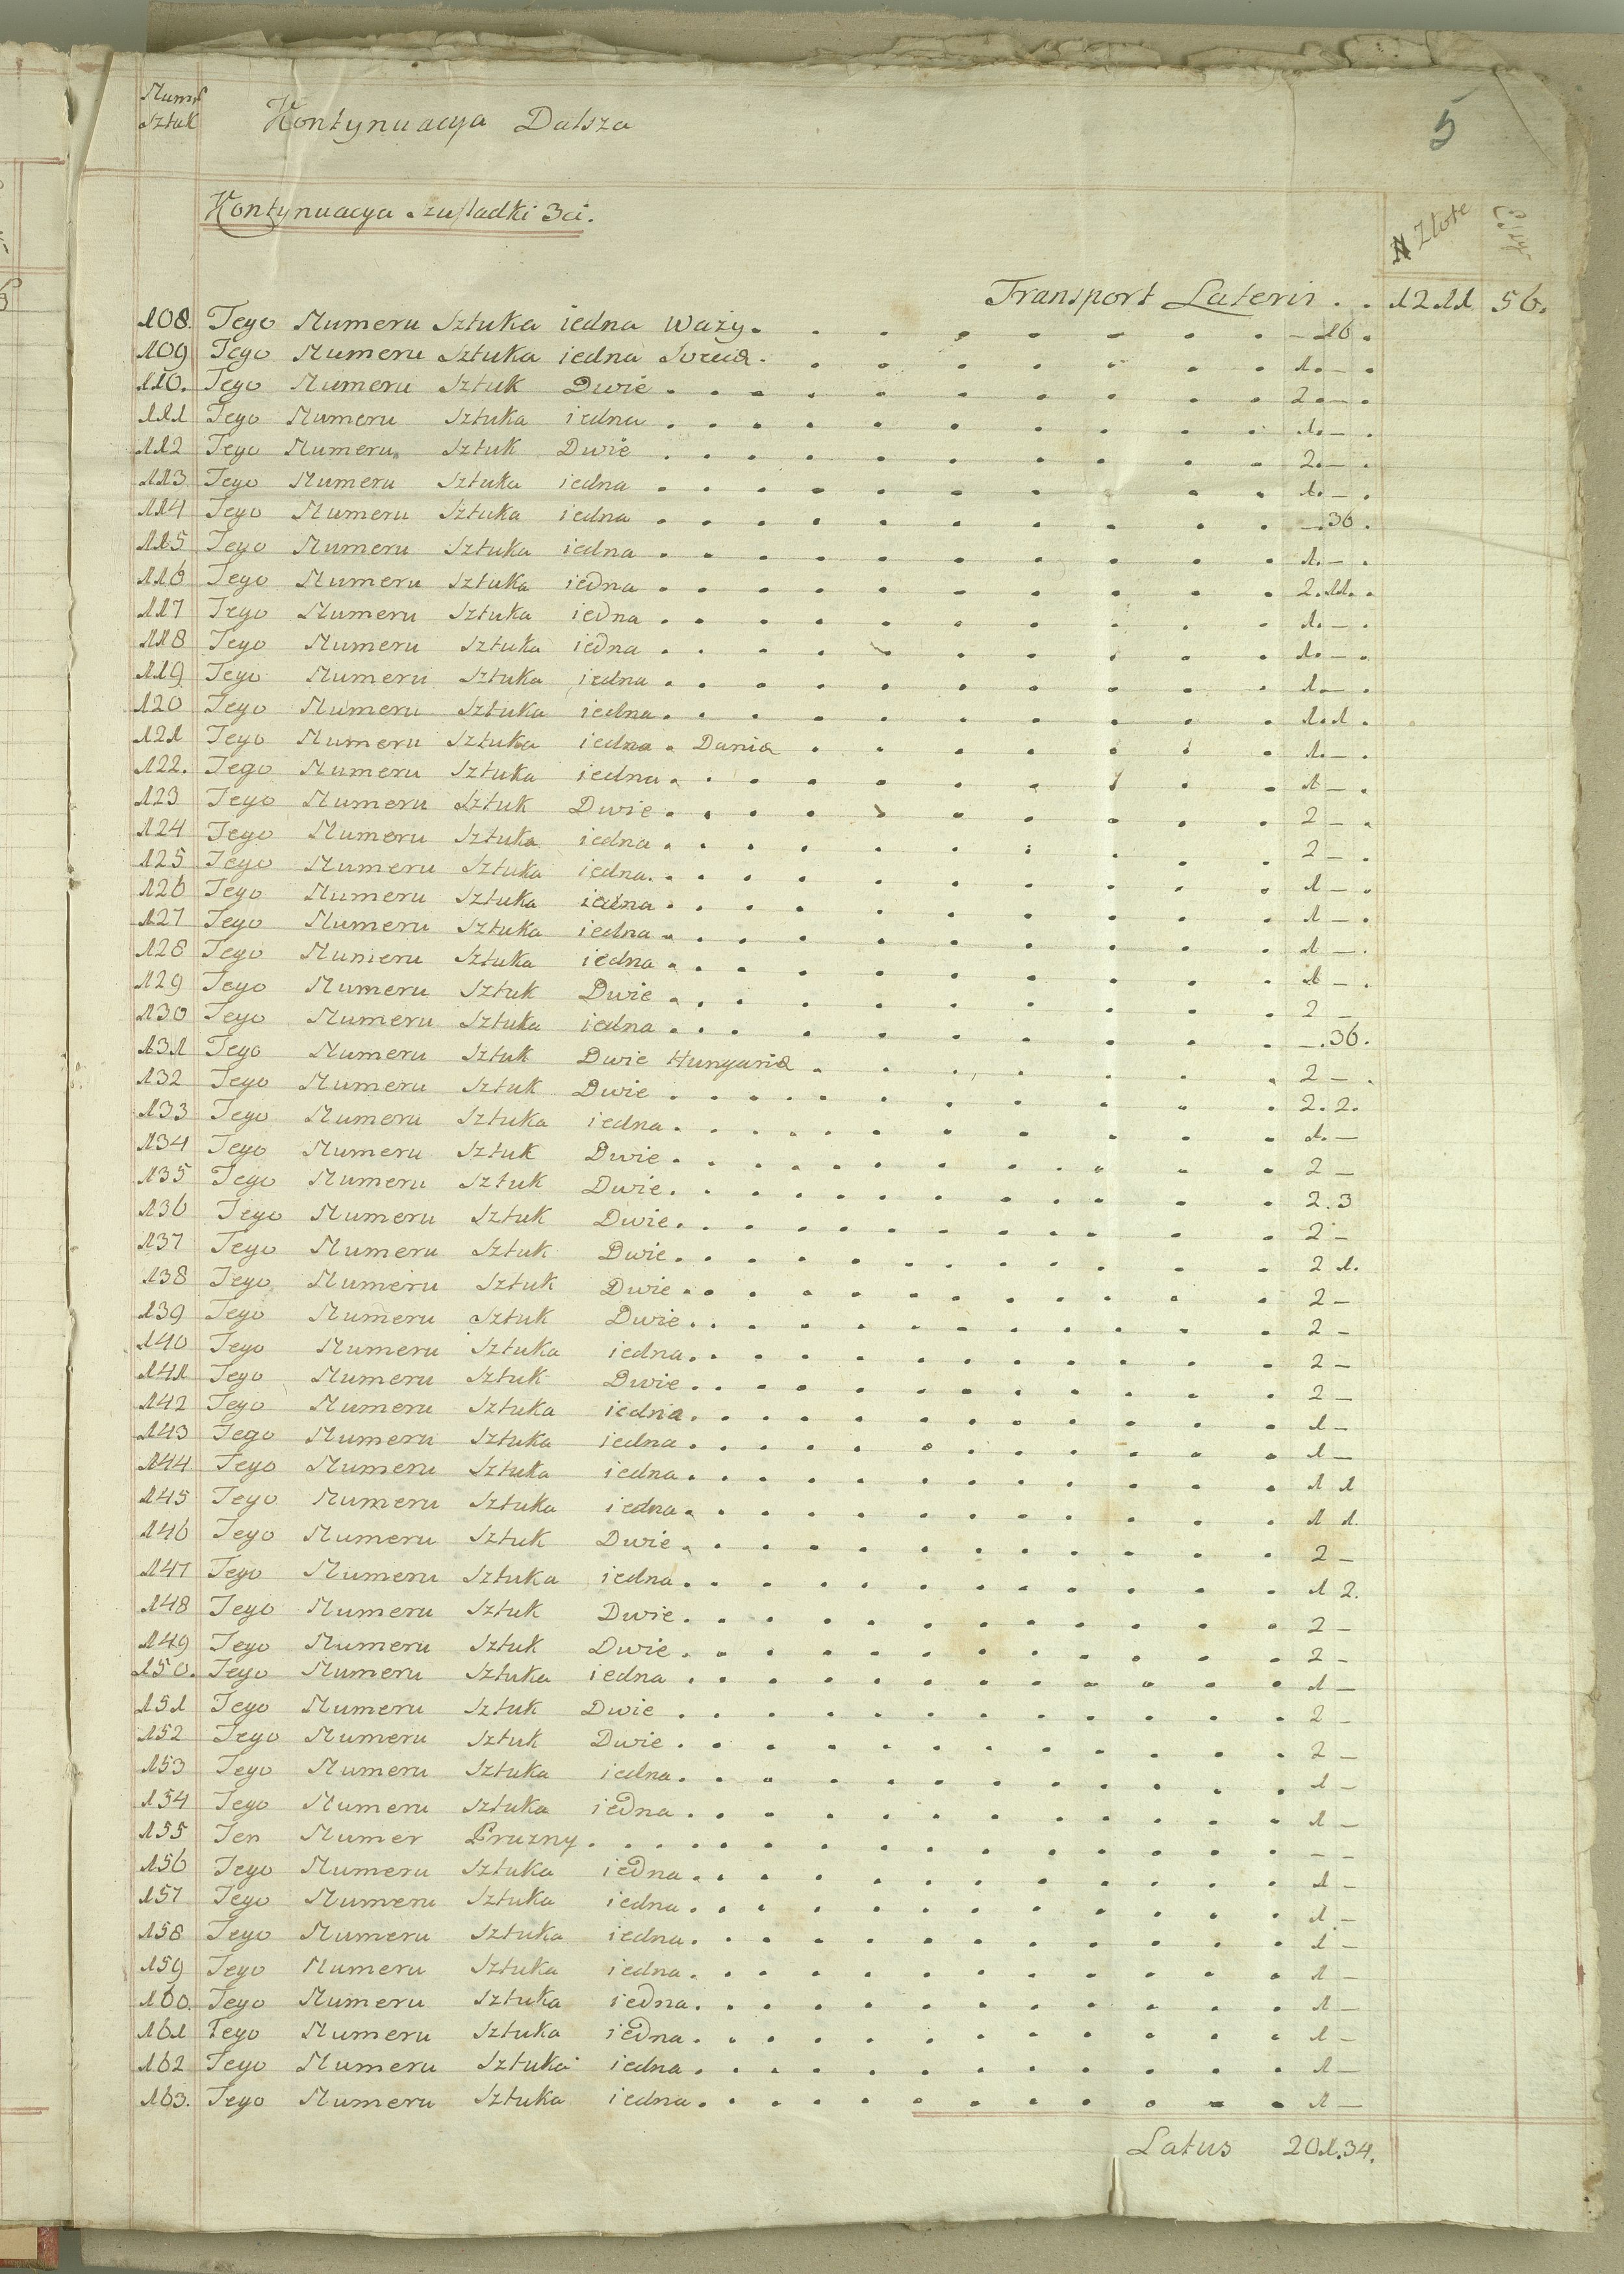 Numer
Sztuk
Kontynuacya Dalsza
5
Kontynuacya Szufladki 3ci.
N Złote
Transport Lateris . . 1211 56.
108. Tego Numeru Sztuka iedna Waży. — 16.
109 Tego Numeru Sztuka iedna Svecia. 1. —.
110. Tego Numeru Sztuk Dwie 2. —.
111 Tego Numeru Sztuka iedna 1. —.
112 Tego Numeru Sztuk Dwie 2. —.
113 Tego Numeru Sztuka iedna 1. —.
114 Tego Numeru Sztuka iedna —. 36.
115 Tego Numeru Sztuka iedna 1. —.
116 Tego Numeru Sztuka iedna 2. 11.
117 Tego Numeru Sztuka iedna 1. —.
118 Tego Numeru Sztuka iedna 1. —.
119 Tego Numeru Sztuka iedna 1. —
120 Tego Numeru Sztuka iedna 1. 1.
121 Tego Numeru Sztuka iedna. Dania 1. —.
122. Tego Numeru Sztuka iedna 1 —.
123 Tego Numeru Sztuk Dwie 2 —.
124 Tego Numeru Sztuka iedna 2 —.
125 Tego Numeru Sztuka iedna 1 —.
126 Tego Numeru Sztuka iedna 1 —.
127 Tego Numeru Sztuka iedna 1 —.
128 Tego Numeru Sztuka iedna 1 —.
129 Tego Numeru Sztuk Dwie 2 —
130 Tego Numeru Sztuka iedna —. 36.
131 Tego Numeru Sztuk Dwie Hungaria 2 —.
132 Tego Numeru Sztuk Dwie 2. 2.
133 Tego Numeru Sztuka iedna 1. —
134 Tego Numeru Sztuk Dwie 2 —
135 Tego Numeru Sztuk Dwie 2. 3
136 Tego Numeru Sztuk Dwie 2 —
137 Tego Numeru Sztuk Dwie 2 1.
138 Tego Numeru Sztuk Dwie 2 —
139 Tego Numeru Sztuk Dwie 2 —
140 Tego Numeru Sztuka iedna 2 —
141 Tego Numeru Sztuk Dwie 2 —
142 Tego Numeru Sztuka iedna 1 —
143 Tego Numeru Sztuka iedna 1 —
144 Tego Numeru Sztuka iedna 1 1
145 Tego Numeru Sztuka iedna 1 1.
146 Tego Numeru Sztuk Dwie 2 —
147 Tego Numeru Sztuka iedna 1 2.
148 Tego Numeru Sztuk Dwie 2 —
149 Tego Numeru Sztuk Dwie 2 —
150. Tego Numeru Sztuka iedna 1 —
151 Tego Numeru Sztuk Dwie 2 —
152 Tego Numeru Sztuk Dwie 2 —
153 Tego Numeru Sztuka iedna 1 —
154 Tego Numeru Sztuka iedna 1 —
155 Ten Numer Pruzny — —
156 Tego Numeru Sztuka iedna 1 —
157 Tego Numeru Sztuka iedna 1 —
158 Tego Numeru Sztuka iedna 1 —
159 Tego Numeru Sztuka iedna 1 —
160. Tego Numeru Sztuka iedna 1 —
161 Tego Numeru Sztuka iedna 1 —
162 Tego Numeru Sztuka iedna 1 —
163. Tego Numeru Sztuka iedna 1 —
Latus 201. 34.